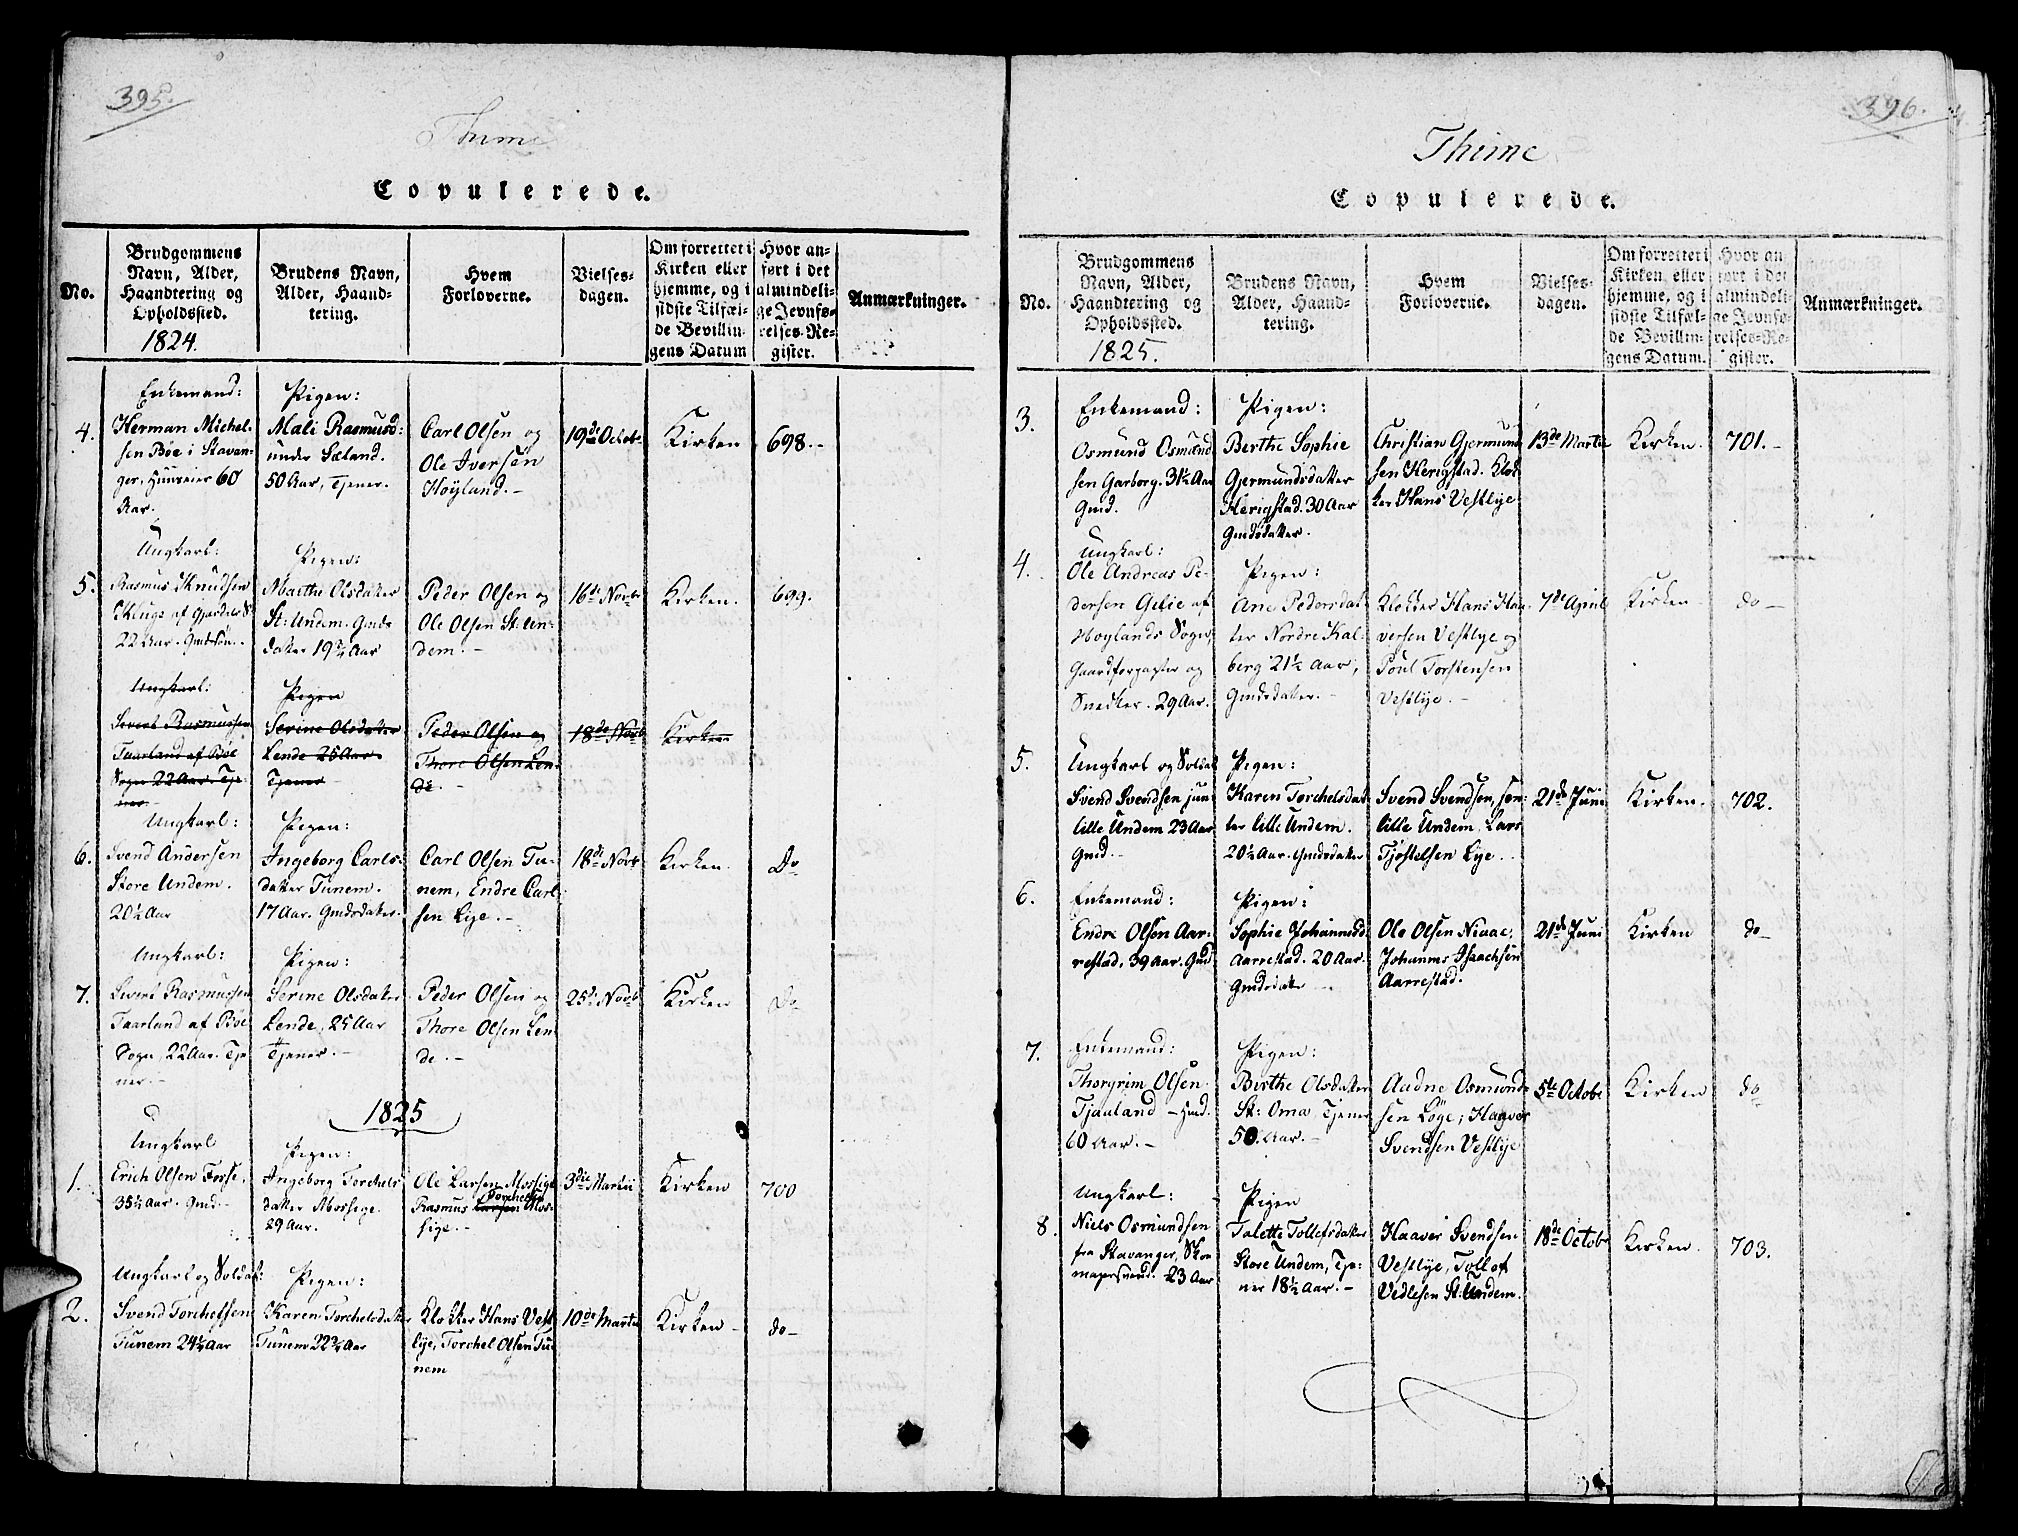 395.
Thime
Copulerede.
No.
Brudgommens Navn, Alder, Haandtering og Opholdssted.
Brudens Navn, Alder, Haandtering.
Hvem Forloverne.
Vielsesdagen.
Om forrettet i Kirken eller hjemme, og i sidste Tilfælde Bevillingens Datum
Hvor anført i det almindelige Jevnførelses-Register.
Anmærkninger.
1824.
4.
Enkemand:
Herman Michel-
sen Bøe i Stavan-
ger, Huuseier 60
Aar.
Pigen:
Mali Rasmusd:
under Sæland.
50 Aar, Tjener.
Carl Olsen og
Ole Iversen
Høyland.-
19de Octobr
Kirken
698.-
5.
Ungkarl:
Rasmus Knudsen
22 Aar. Gmdssøn.
Pigen:
Marthe Olsdatter
St: Undem. Gmds
datter 19¾ Aar
Peder Olsen og
Ole Olsen St: Un-
dem.-
16de Novbr
Kirken.
699.
Ungkarl:
Sivert Rasmussen
Taarland af Bøe
Sogn 22 Aar Tje-
ner
Pigen
Serine Olsdatter
Lende 25 Aar
Tjener
Peder Olsen og
Thore Olsen Len-
de.-
18de Novb
Kirken
6.
Ungkarl:
Svend Andersen
Store Undem.
20½ Aar
Pigen:
Ingeborg Carls-
datter Tunem.
17 Aar. Gmdsdatter.
Carl Olsen Tu-
nem, Endre Carl-
sen Lye.-
18de Novb
Kirken.
Do
7.
Ungkarl:
Sivert Rasmussen
Taarland af Bøe
Sogn, 22 Aar. Tje
ner.-
Pigen:
Serine Olsdatter
Lende, 25 Aar
Tjener.-
Peder Olsen og
Thore Olsen Len-
de.-
25de Novb
Kirken
Do
1825
1.
Ungkarl
Erich Olsen Fosse,
35½ Aar. Gmd.-
Pigen:
Ingeborg Torchels
datter Mossige.
29 Aar.
Ole Larsen Mossige
Torchelsen
Rasmus Larsen Mos-
sige.-
3die Martii
Kirken
700
2.
Ungkarl og Soldat:
Svend Torchelsen
Tunem 24½ Aar
Pigen:
Karen Torchelsdatter
Tunem 22¾ Aar
Klokker Hans Vest
lye, Torchel Olsen Tu-
nem
10de Martii
Kirken
do-
396.
Thime
Copulerede.
No.
Brudgommens Navn, Alder, Haandtering og Opholdssted.
Brudens Navn, Alder, Haandtering.
Hvem Forloverne.
Vielsesdagen.
Om forrettet i Kirken eller hjemme, og i sidste Tilfælde Bevillingens Datum.
Hvor anført i det almindelige Jevnførelses-Register.
Anmærkninger.
1825.
3.
Enkemand:
Osmund Osmund
sen Garborg. 31½ Aar
Gmd.
Pigen:
Berthe Sophie
Gjermundsdatter
Herigstad. 30 Aar
Gmdsdatter.
Christian Gjermund
sen Herigstad. Klok
ker Hans Vestlye
13de Martii
Kirken.
701.-
4.
Ungkarl:
Ole Andreas Pe-
dersen Gilie af
Høylands Sogn,
Gaardforpagter og
Snedker. 29 Aar.
Pigen:
Ane Pedersdat-
ter Nordre Kal-
berg 21½ Aar,
Gmdsdatter.-
Klokker Hans Haa-
versen Vestlye og
Poul Torstensen
Vestlye.-
7de April
Kirken
do-
5.
Ungkarl og Soldat
Svend Svendsen jun:
lille Undem 23 Aar
Gmd.
Pigen:
Karen Torchelsdat-
ter lille Undem.
20½ Aar. Gmdsdatter
Svend Svendsen, sen:
lille Undem, Lars
Tjøstelsen Lye.
21de Juni
Kirken.
702.
6.
Enkemand:
Endre Olsen Aar-
restad, 39 Aar. Gmd
Pigen:
Sophie Johannesd
Aarrestad. 20 Aar.
Gmdsdatter
Ole Olsen Niaae,
Johannes Isaachsen
Aarrestad.
21de Juni
Kirken
do
7.
Enkemand:
Thorgrim Olsen
Tjaaland - Hmd.
60 Aar.-
Pigen:
Birthe Olsdatter
St: Oma, Tjener
50. Aar.-
Aadne Osmunds
sen Løge; Haaver
Svendsen Vestlye
5te Octobr
Kirken
do
8.
Ungkarl:
Niels Osmundsen
fra Stavanger, Sko
magersvend. 23 Aar
Pigen
Talette Tollefsdatter
Store Undem, Tje-
ner 18½ Aar.-
Haaver Svendsen
Vestlye, Tollof
Vedlesen St: Undem.
18de Octobr
Kirken.
703.